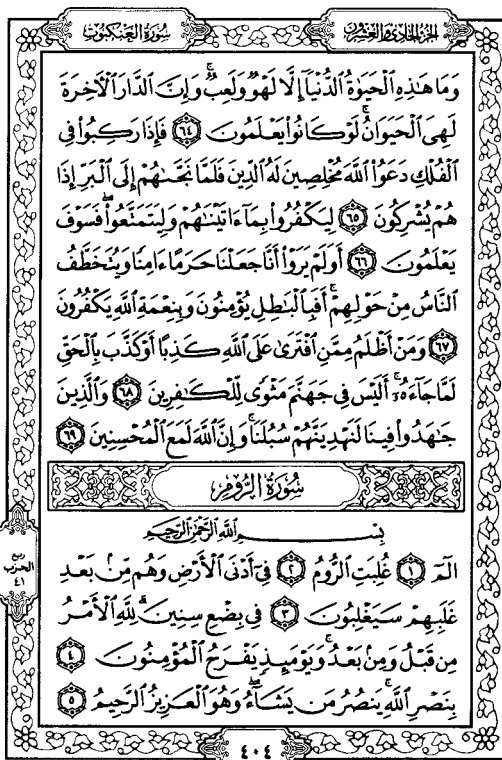 الجزء الحادي والعشرون
سورة العنكبوت
وَمَا هَـٰذِهِ ٱلْحَيَوٰةُ ٱلدُّنْيَآ إِلَّا لَهْوٌ وَلَعِبٌ ۚ وَإِنَّ ٱلدَّارَ ٱلْـَٔاخِرَةَ
لَهِىَ ٱلْحَيَوَانُ ۚ لَوْ كَانُوا۟ يَعْلَمُونَ ٦٤ فَإِذَا رَكِبُوا۟ فِى
ٱلْفُلْكِ دَعَوُا۟ ٱللَّهَ مُخْلِصِينَ لَهُ ٱلدِّينَ فَلَمَّا نَجَّىٰهُمْ إِلَى ٱلْبَرِّ إِذَا
هُمْ يُشْرِكُونَ ٦٥ لِيَكْفُرُوا۟ بِمَآ ءَاتَيْنَـٰهُمْ وَلِيَتَمَتَّعُوا۟ ۖ فَسَوْفَ
يَعْلَمُونَ ٦٦ أَوَلَمْ يَرَوْا۟ أَنَّا جَعَلْنَا حَرَمًا ءَامِنًا وَيُتَخَطَّفُ
ٱلنَّاسُ مِنْ حَوْلِهِمْ ۚ أَفَبِٱلْبَـٰطِلِ يُؤْمِنُونَ وَبِنِعْمَةِ ٱللَّهِ يَكْفُرُونَ
٦٧ وَمَنْ أَظْلَمُ مِمَّنِ ٱفْتَرَىٰ عَلَى ٱللَّهِ كَذِبًا أَوْ كَذَّبَ بِٱلْحَقِّ
لَمَّا جَآءَهُۥٓ ۚ أَلَيْسَ فِى جَهَنَّمَ مَثْوًى لِّلْكَـٰفِرِينَ ٦٨ وَٱلَّذِينَ
جَـٰهَدُوا۟ فِينَا لَنَهْدِيَنَّهُمْ سُبُلَنَا ۚ وَإِنَّ ٱللَّهَ لَمَعَ ٱلْمُحْسِنِينَ ٦٩
سورة الروم
بِسْمِ ٱللَّهِ ٱلرَّحْمَـٰنِ ٱلرَّحِيمِ
الٓمٓ ١ غُلِبَتِ ٱلرُّومُ ٢ فِىٓ أَدْنَى ٱلْأَرْضِ وَهُم مِّنۢ بَعْدِ
غَلَبِهِمْ سَيَغْلِبُونَ ٣ فِى بِضْعِ سِنِينَ ۗ لِلَّهِ ٱلْأَمْرُ
مِن قَبْلُ وَمِنۢ بَعْدُ ۚ وَيَوْمَئِذٍ يَفْرَحُ ٱلْمُؤْمِنُونَ ٤
بِنَصْرِ ٱللَّهِ ۚ يَنصُرُ مَن يَشَآءُ ۖ وَهُوَ ٱلْعَزِيزُ ٱلرَّحِيمُ ٥
ربع
الحزب
٤١
٤٠٤